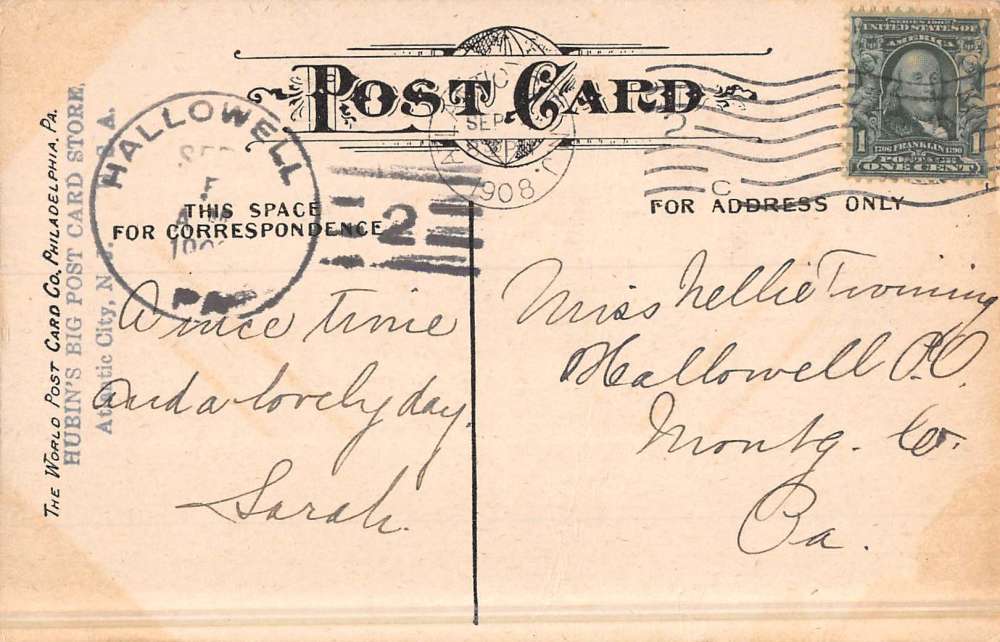 POST CARD
THE WORLD POST CARD CO., PHILADELPHIA, PA.
HUBIN'S BIG POST CARD STORE,
Atlantic City, N. J. U. S. A.
HALLOWELL
SEP
5
PA
2
SEP
1908
2
C
SERIES 1902
UNITED STATES OF
AMERICA
1 FRANKLIN 1
POSTAGE
ONE CENT
THIS SPACE
FOR CORRESPONDENCE
FOR ADDRESS ONLY
A nice time
and a lovely day.
Sarah.
Miss Nellie Twining
Hallowell P.O.
Montg. Co.
Pa.